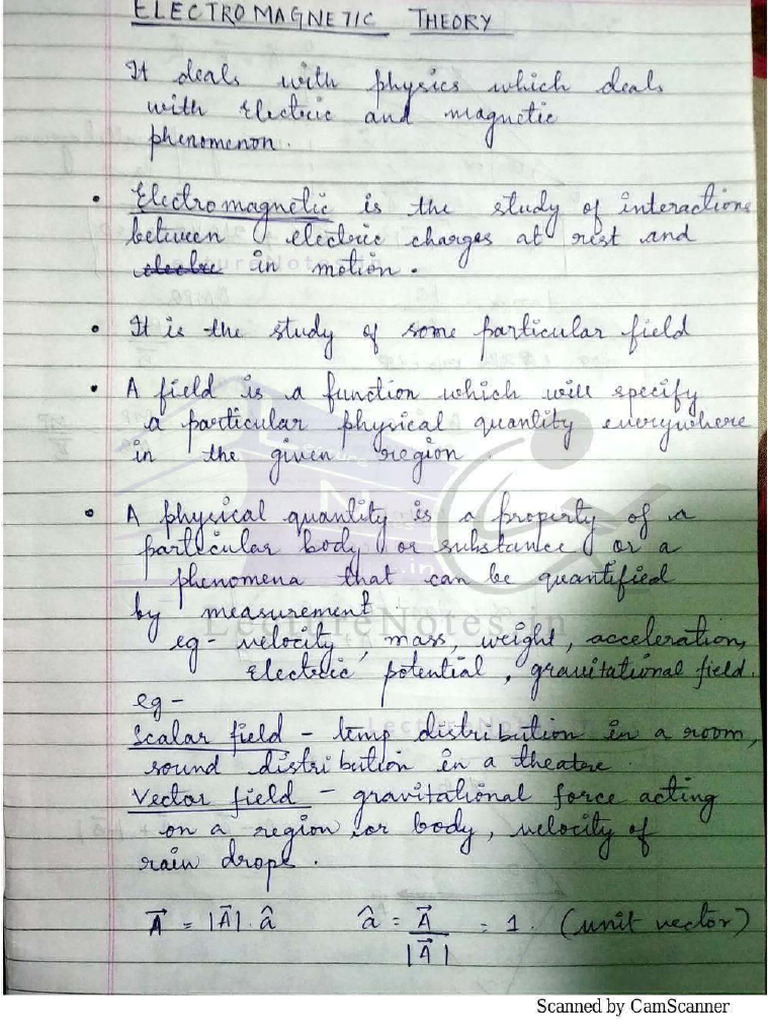 ELECTROMAGNETIC THEORY
It deals with physics which deals
with Electric and magnetic
phenomenon.
• Electromagnetic is the study of interactions
between electric charges at rest and
in motion.
LectureNotes.in
• It is the study of some particular field
• A field is a function which will specify
a particular physical quantity everywhere
in the given region.
• A physical quantity is a property of a
particular body or substance or a
phenomena that can be quantified
by measurement
LectureNotes.in
eg - velocity, mass, weight, acceleration,
Electric potential, gravitational field.
eg -
LectureNotes.in
Scalar field - temp distribution in a room,
sound distribution in a theatre.
Vector field - gravitational force acting
on a region or body, velocity of
rain drops.
A⃗ = |A⃗|.â   â = A⃗/|A⃗| = 1. (unit vector)
Scanned by CamScanner